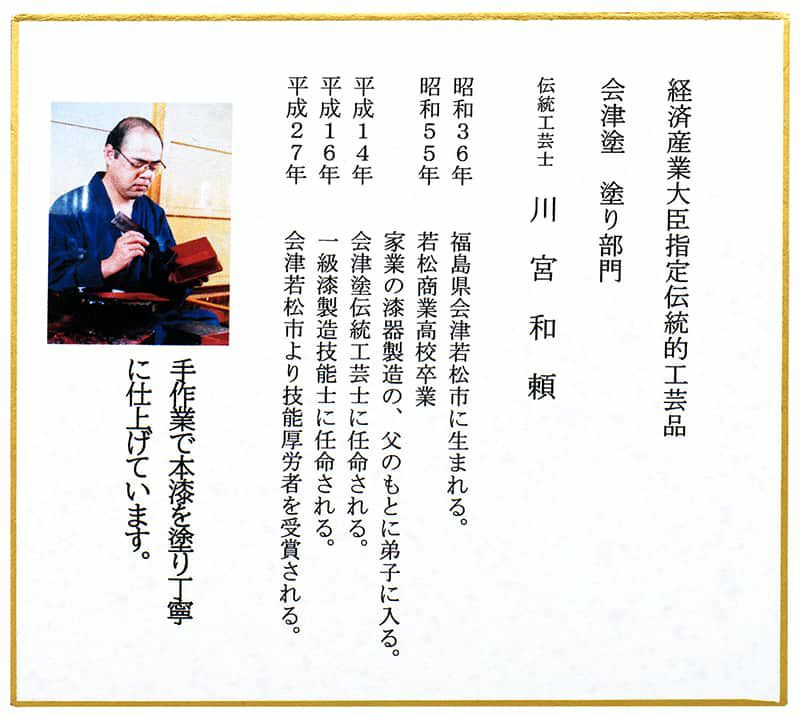 経済産業大臣指定伝統的工芸品
会津塗　塗り部門
伝統工芸士　川宮和頼
昭和３６年　福島県会津若松市に生まれる。
昭和５５年　若松商業高校卒業
家業の漆器製造の、父のもとに弟子に入る。
平成１４年　会津塗伝統工芸士に任命される。
平成１６年　一級漆製造技能士に任命される。
平成２７年　会津若松市より技能厚労者を受賞される。
手作業で本漆を塗り丁寧
に仕上げています。